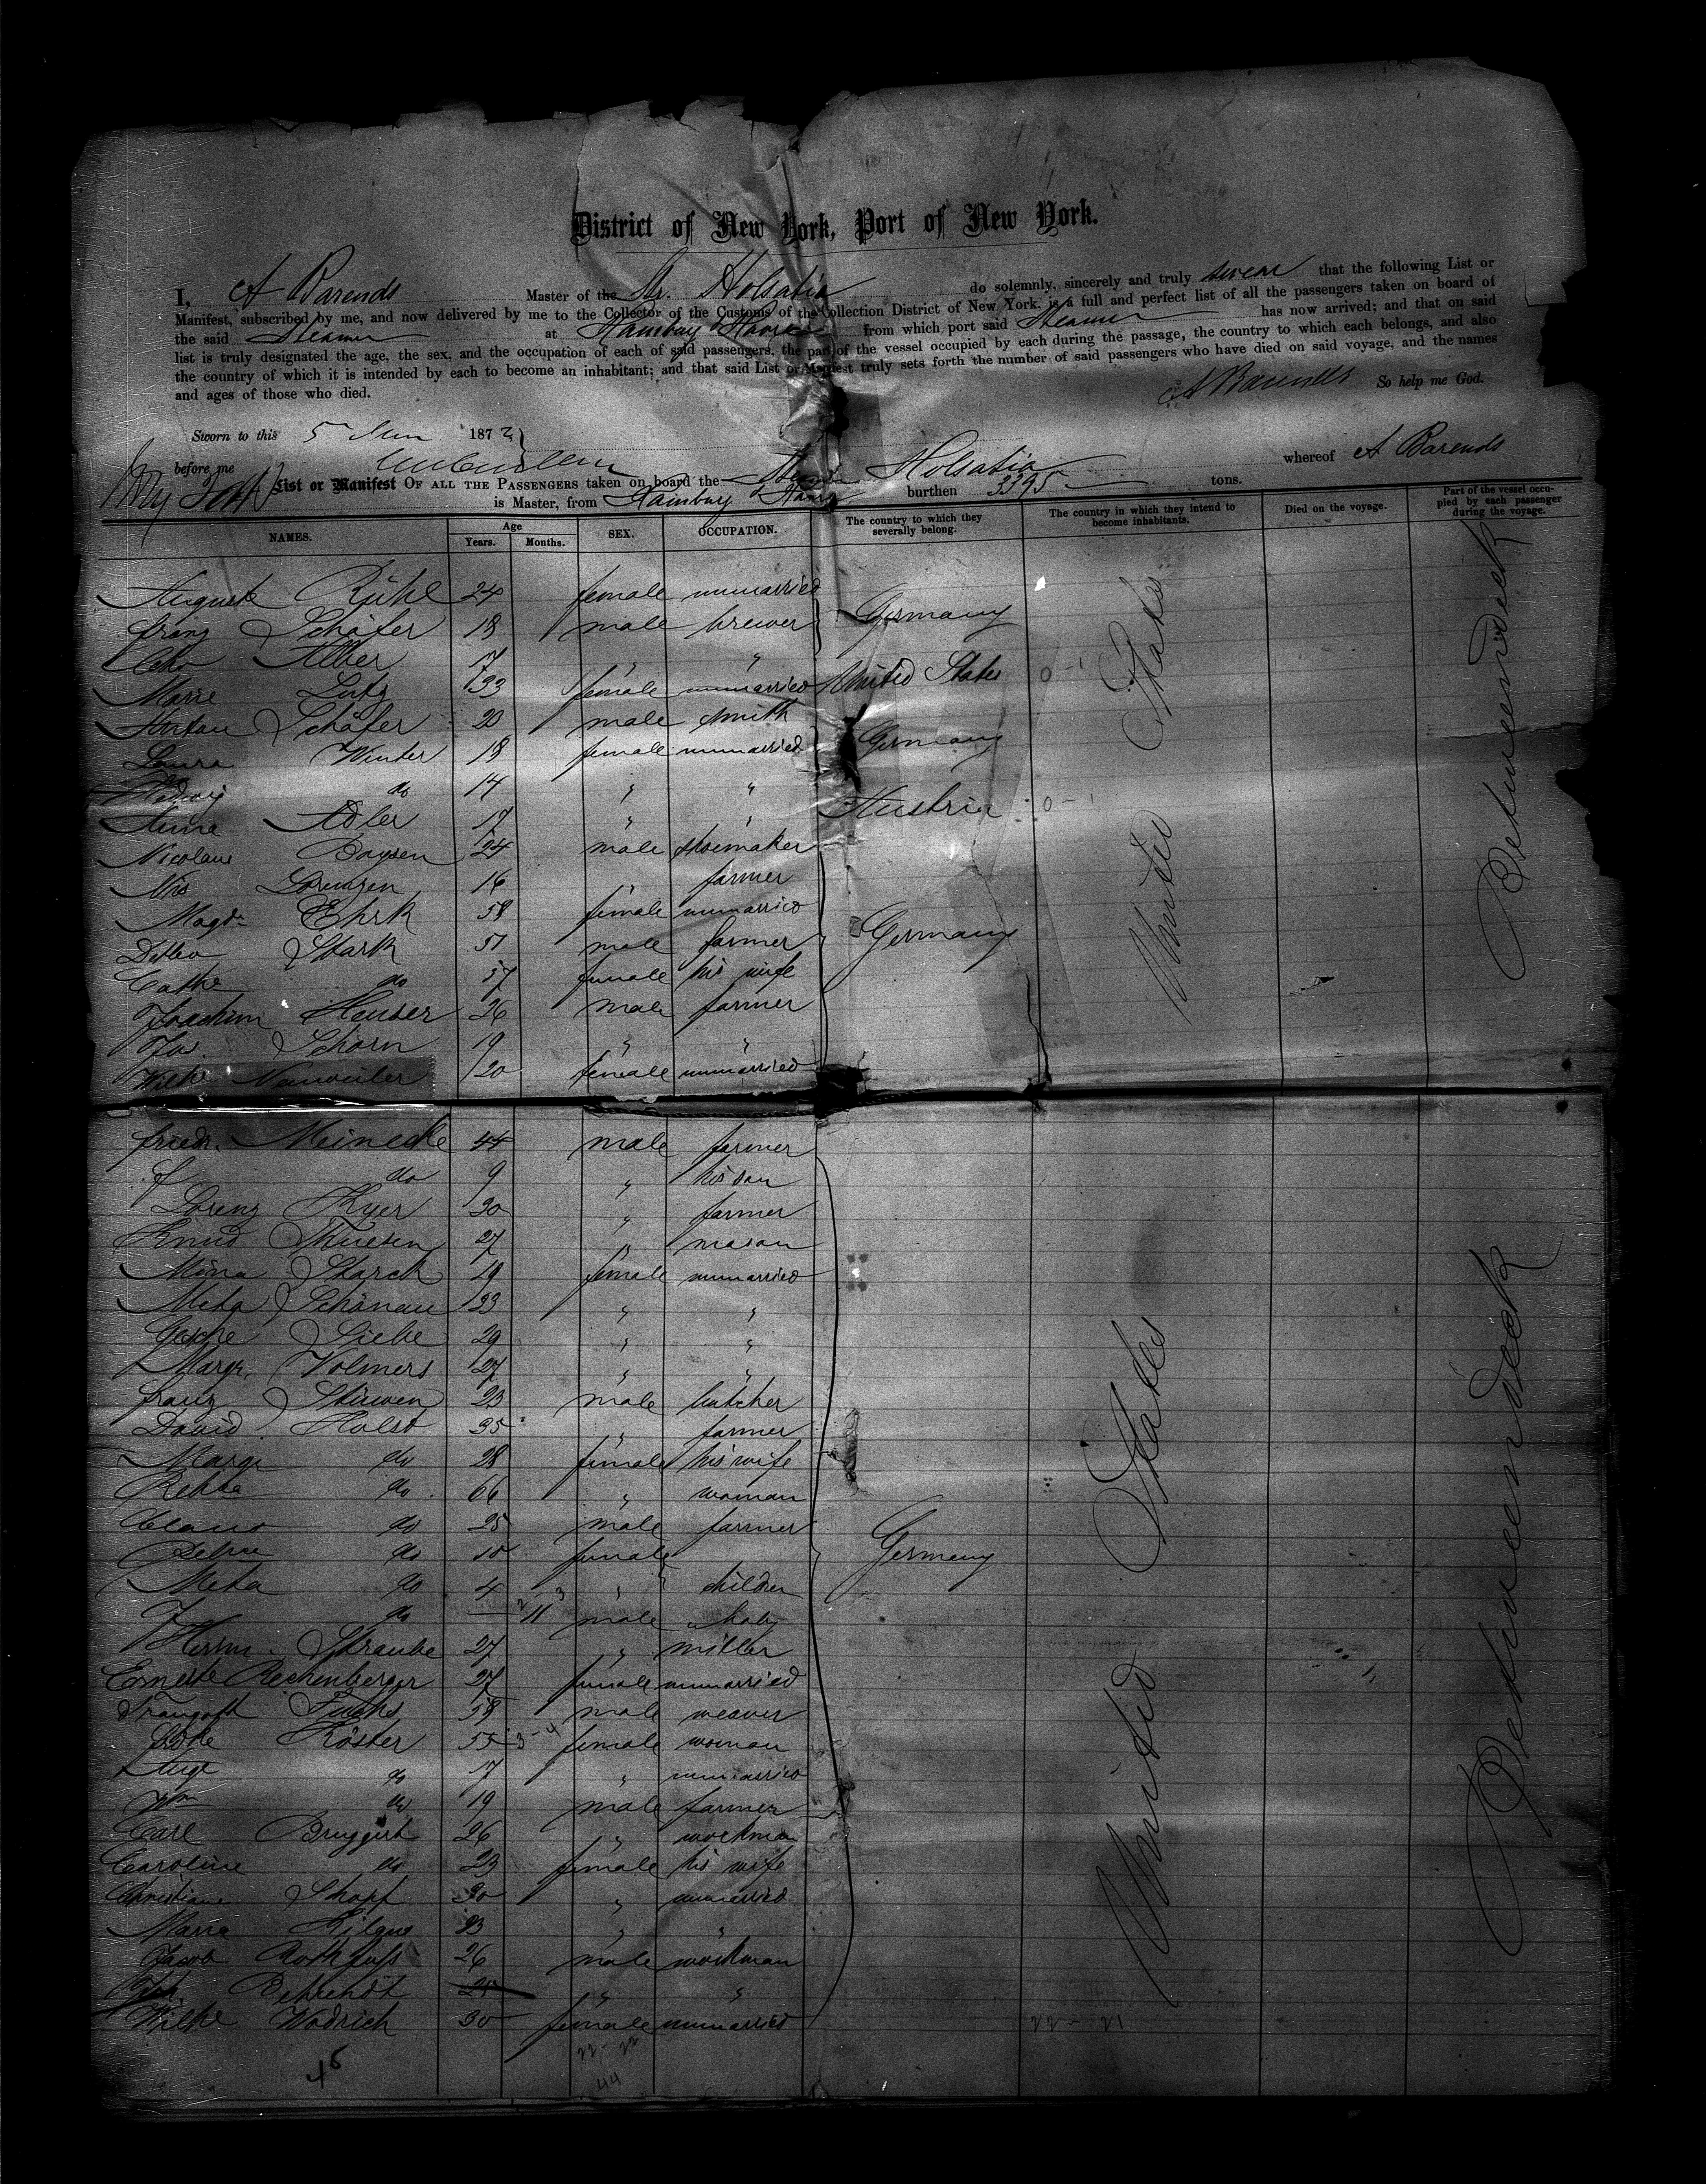 District of New York, Port of New York.
I, A Barends Master of the Str. Holsatia do solemnly, sincerely and truly swear that the following List or
Manifest, subscribed by me, and now delivered by me to the Collector of the Customs of the Collection District of New York, is a full and perfect list of all the passengers taken on board of
the said Steamer at Hamburg Havre from which port said Steamer has now arrived; and that on said
list is truly designated the age, the sex, and the occupation of each of said passengers, the part of the vessel occupied by each during the passage, the country to which each belongs, and also
the country of which it is intended by each to become an inhabitant; and that said List or Manifest truly sets forth the number of said passengers who have died on said voyage, and the names
and ages of those who died.
A Barends So help me God.
Sworn to this 5 June 187
before me
List or Manifest OF ALL THE PASSENGERS taken on board the Steamer Holsatia whereof A Barends
is Master, from Hamburg Havre burthen 3395 tons.
NAMES. Age Years. Months. SEX. OCCUPATION. The country to which they severally belong. The country in which they intend to become inhabitants. Died on the voyage. Part of the vessel occupied by each passenger during the voyage.
Auguste Rühl 24 female unmarried
Franz Schäfer 18 male brewer Germany
Alber 17 " "
Marie Lutz 33 female unmarried United States
Schäfer 20 male smith
Laura Winter 18 female unmarried Germany
Hedwig do 14 " "
Anna Adler 17 " " Austria
Nicolaus Boysen 24 male shoemaker
Nis Lorenzen 16 farmer
Magd. Ehrk 58 female unmarried
Detlev Stark 51 male farmer Germany
Cathe do 57 female his wife
Joachim Heuser 26 male farmer
Schorn 19 " "
Wilhe Neuweiler 20 female unmarried
United States
Between deck
Friedr. Meinecke 44 male farmer
F do 9 " his son
Lorenz Kyer 30 " farmer
Knud 27 " mason
Mina Starck 19 female unmarried
Meta Schönau 33 " "
Gesche Siebe 29 " "
Margr. Volmers 27 " "
Franz Stüwen 23 male butcher
David Holst 35 " farmer
Margr do 28 female his wife
Rebka do 66 " woman
Claus do 25 male farmer
do 10 female Germany
Meta do 4 " children
J do 11 male baby
Herm. Straube 27 " miller
Ernestte Rechenberger 27 female unmarried
Traugott Fuchs 58 male weaver
Röster 55 female woman
Auge do 17 " unmarried
Wm do 19 male farmer
Carl Bruggert 26 " workman
Caroline do 23 female his wife
Christiane Schopf 30 " unmarried
Maria 23 " "
Jacob Rothfuss 26 male workman
Joh. Behrendt " "
Wilhe Wodrich 30 female unmarried
United States
Between deck
22 - 22
44
22 - 21
45